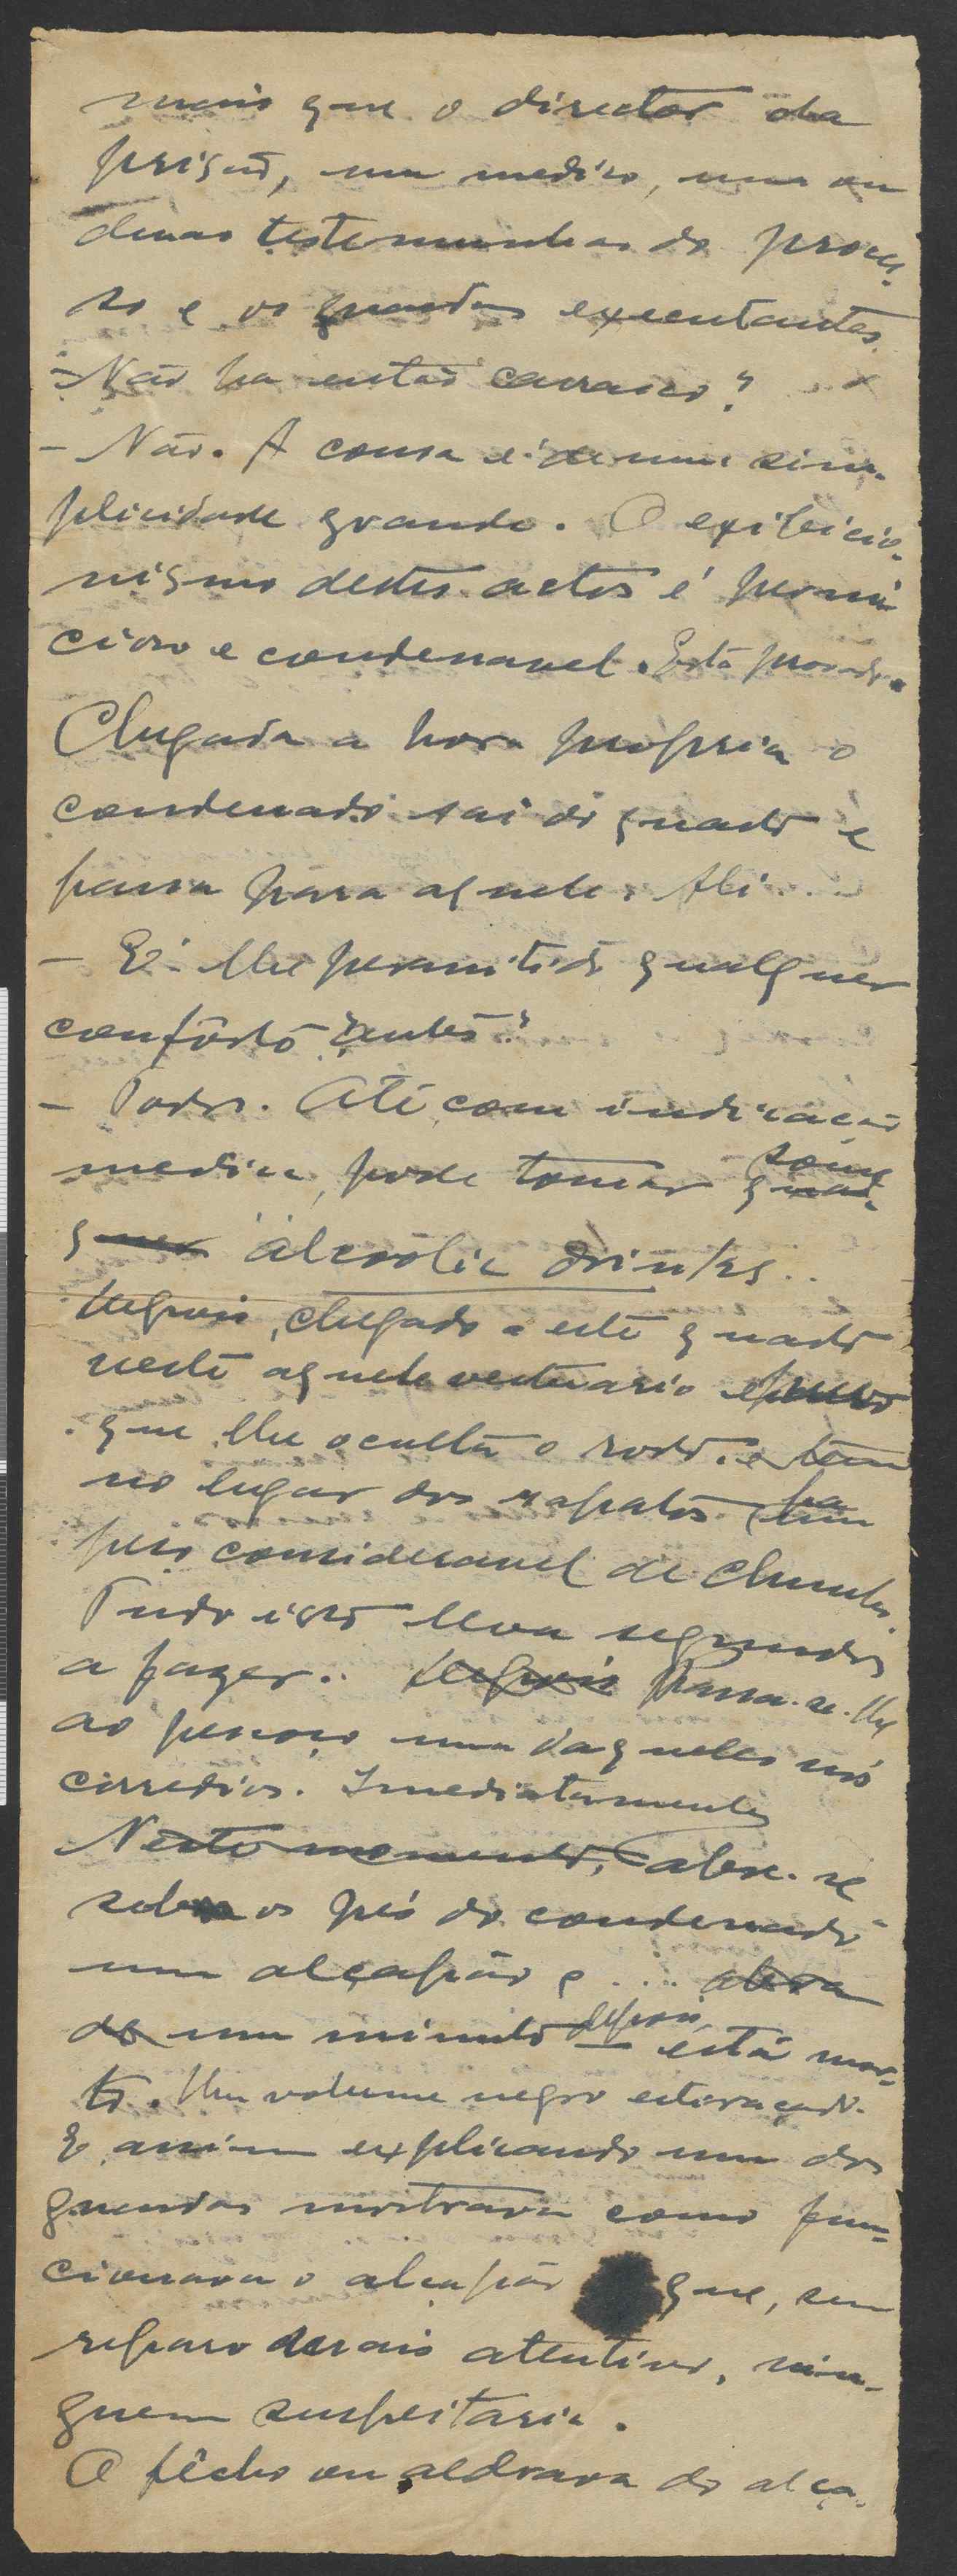 mais que o director da
prisão, um medico, uma ou
duas testemunhas do proces-
so e os guardas executantes.
- Não ha então carrasco?
- Não. A cousa é de uma sim-
plicidade grande. O exibicio-
nismo destes actos é perni
cioso e condenavel. Está provado.
Chegada a hora propria o
condenado sai do quarto e
passa para aquele. Ali...
- É-lhe permitido qualquer
confôrto antes?
- Todo. Até com indicação
medica, pode tomar some
alcoolic drinks..
Depois, chegado a este quarto
veste aquele vestuario
que lhe oculta o rosto. e tem
no lugar dos sapatos um
peso consideravel de chumbo
Tudo isto leva segundos
a fazer.. Passa-se-lhe
ao pescoço um daqueles nós
corredios. Imediatamente
Neste momento, abre-se
sob os pés do condenado
um alçapão e .... 
um minuto depois está mor-
to. Um volume negro estiraçado.
E assim explicando um dos
guardas mostrava como fun-
cionava o alçapão que, sem
reparo demais atentivo, nin-
guem suspeitaria.
O fêcho ou aldrava do alça-